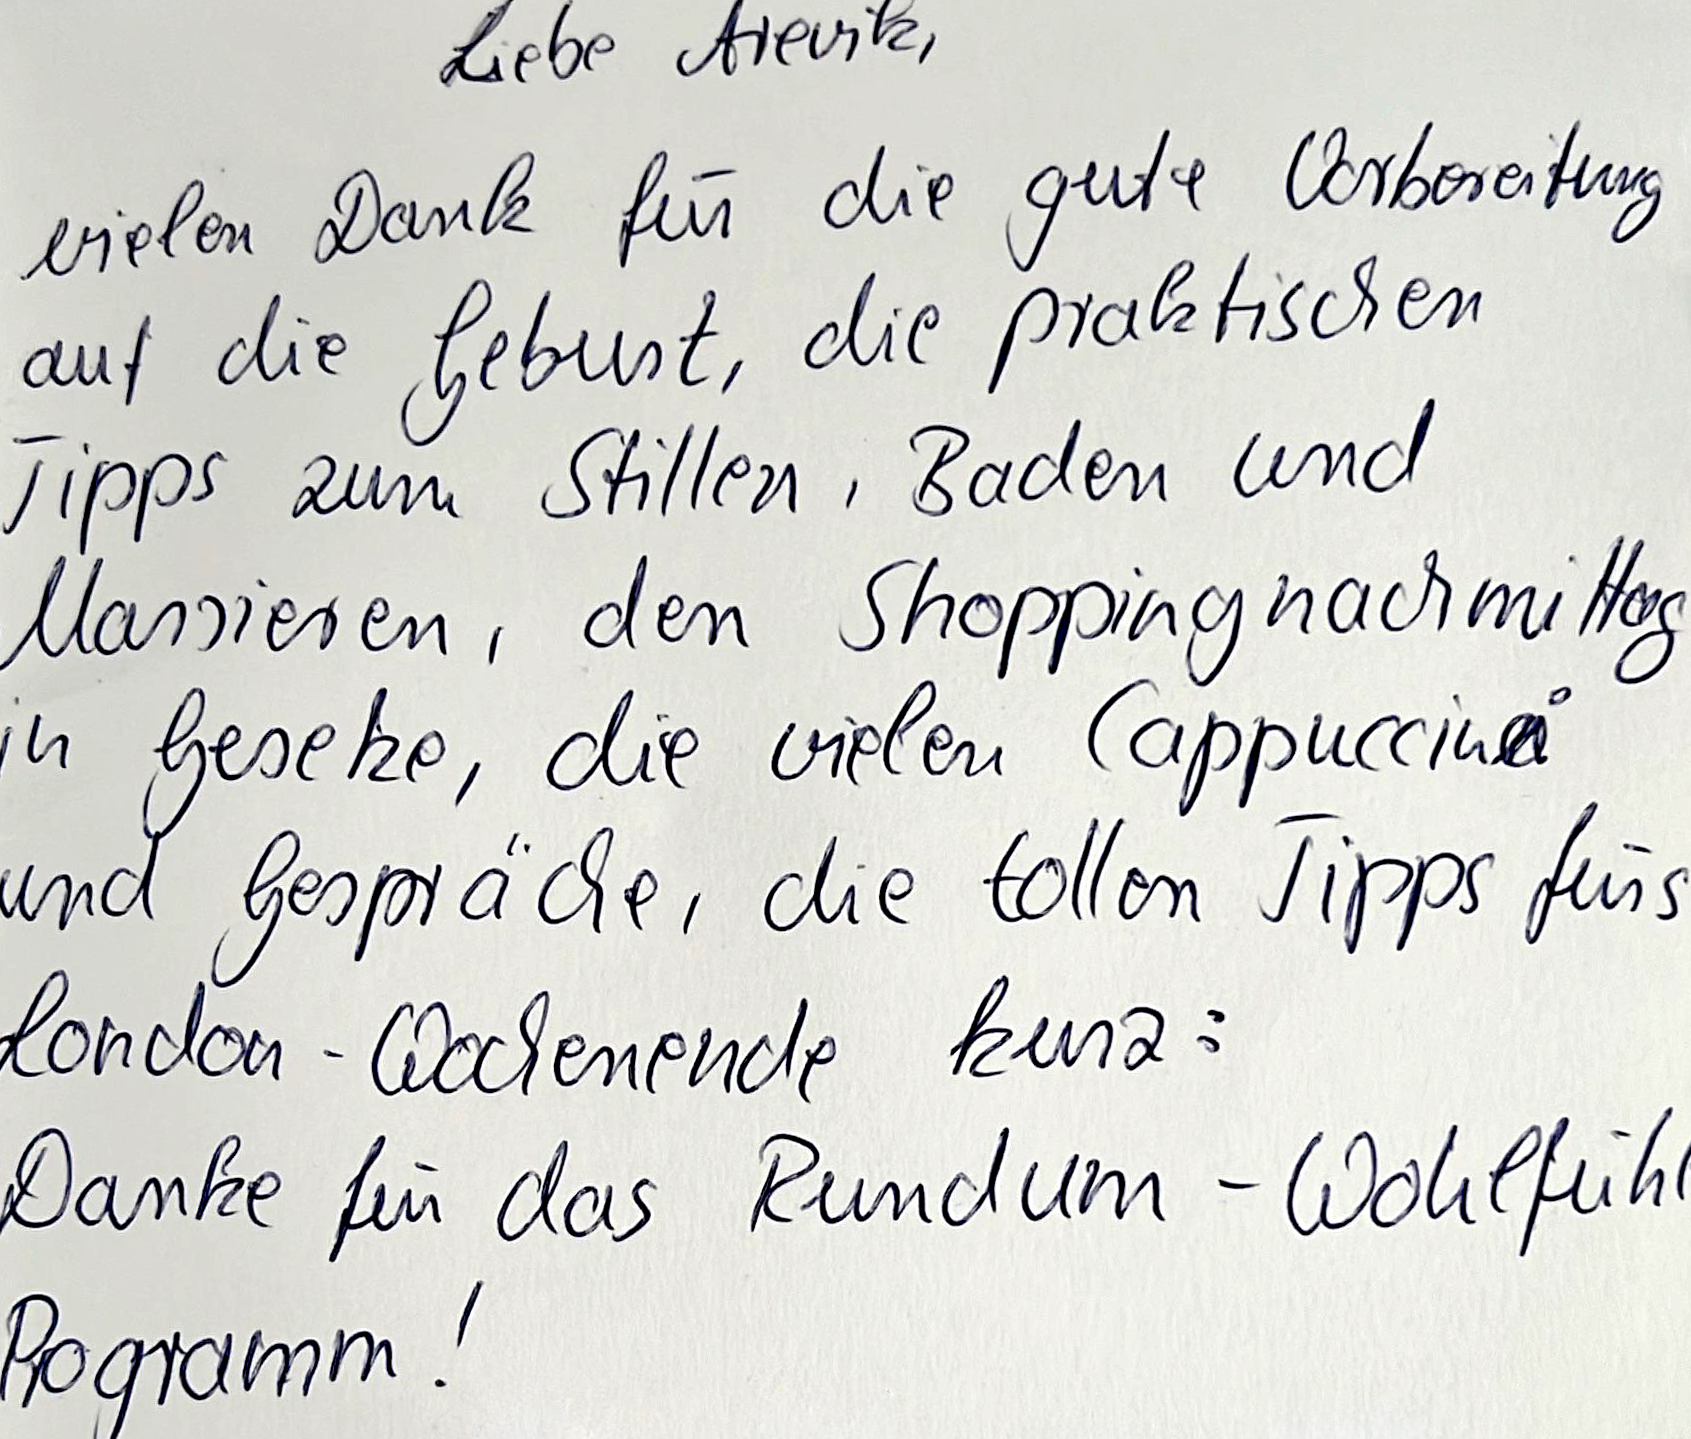 Liebe Arevik,
vielen Dank für die gute Vorbereitung
auf die Geburt, die praktischen
Tipps zum Stillen, Baden und
Massieren, den Shoppingnachmittag
in Geseke, die vielen Cappuccini
und Gespräche, die tollen Tipps fürs
London-Wochenende kurz:
Danke für das Rundum-Wohlfühl
Programm!